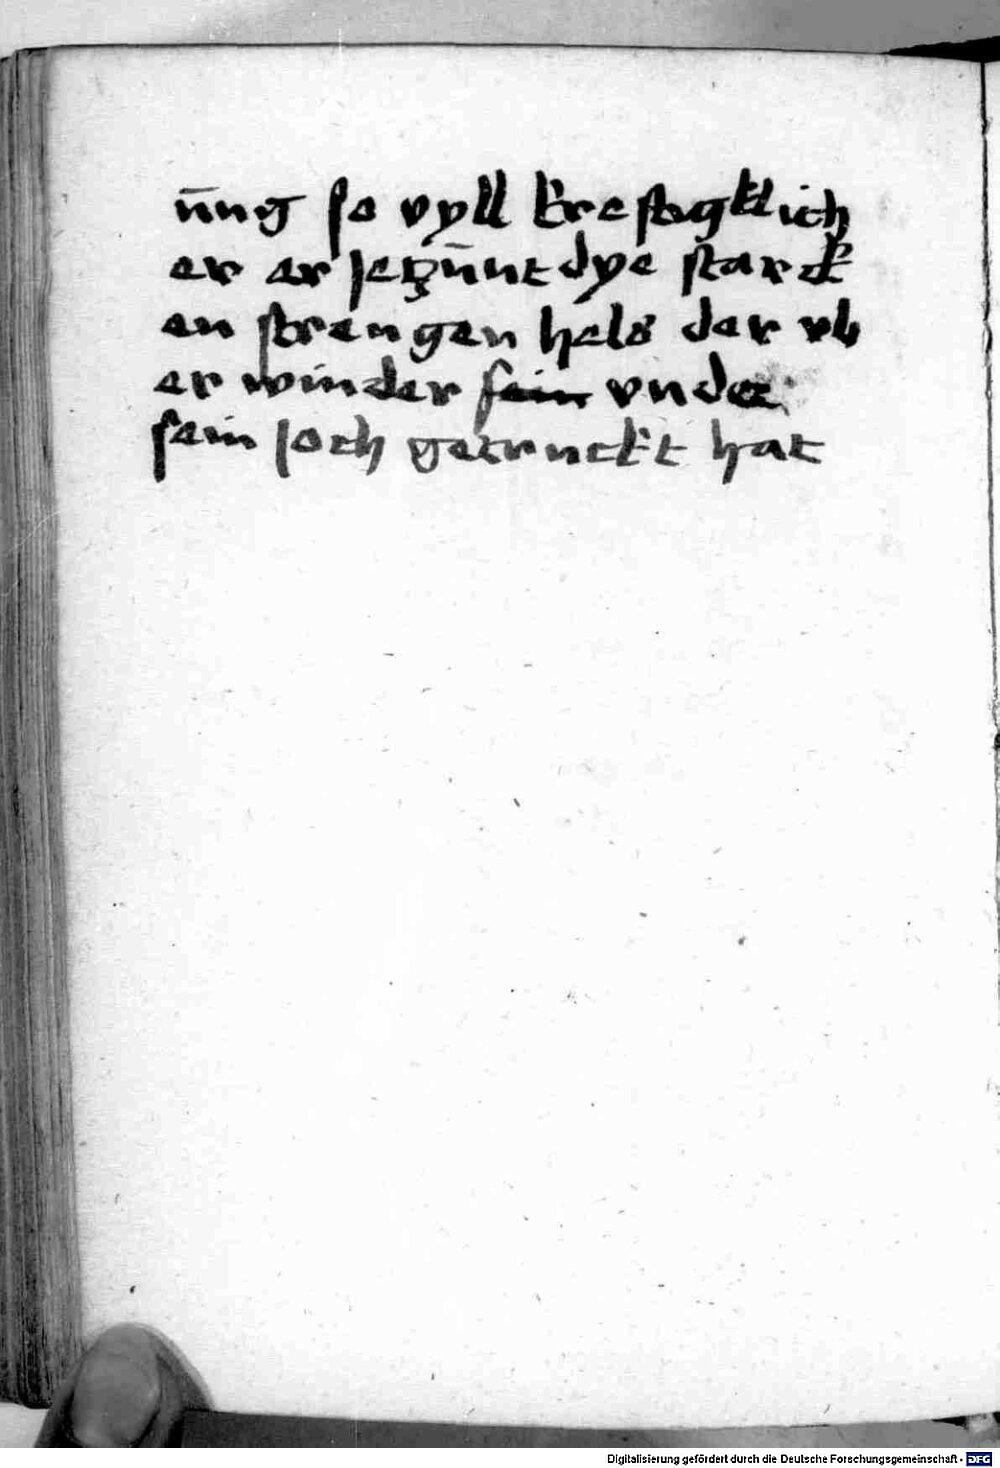 n̄ng so vyll krefftigklich
er er ie zūnt dye starck
en strengen hels der vb
er winder sein vnder
sein joch getruckt hat
Digitalisierung gefördert durch die Deutsche Forschungsgemeinschaft - DFG